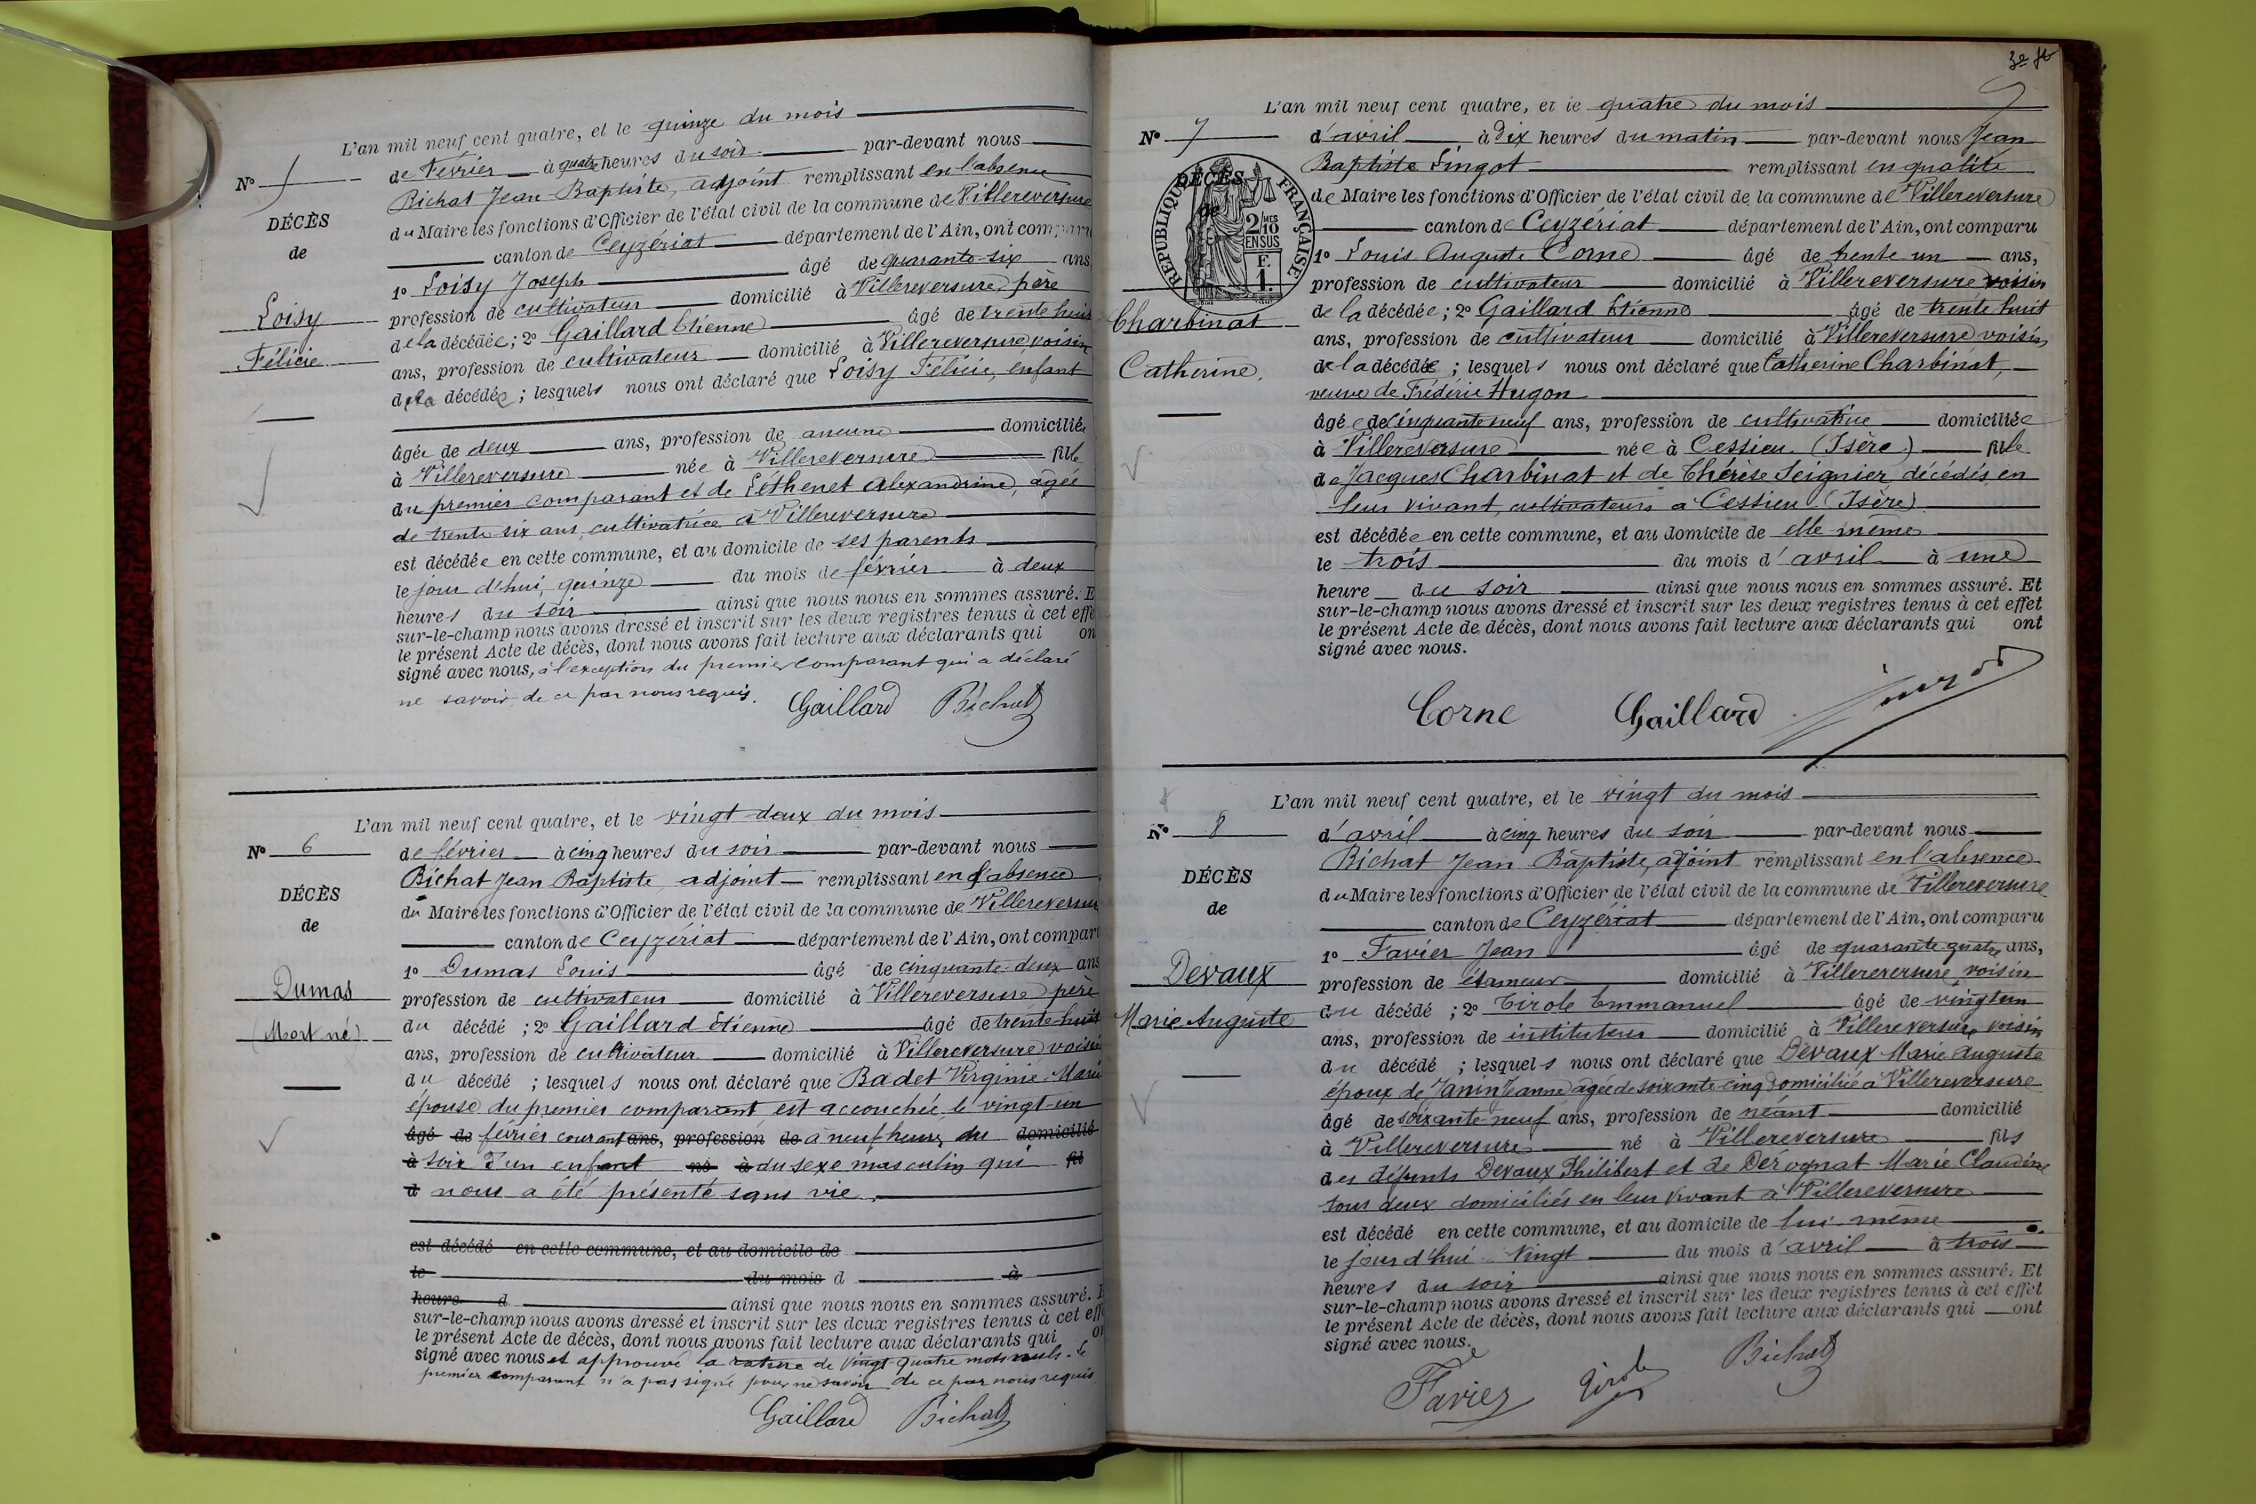 L'an mil neuf cent quatre, et le quinze du mois
N° 5
DÉCÈS
de
Loisy
Félicie
de Février à quatre heures du soir par-devant nous
Bichat Jean Baptiste, adjoint remplissant en l'absence
du Maire les fonctions d'Officier de l'état civil de la commune de Villereversure
canton de Ceyzériat département de l'Ain, ont comparu
1° Loisy Joseph âgé de quarante-six ans
profession de cultivateur domicilié à Villereversure père
de la décédée ; 2° Gaillard Etienne âgé de trente huit
ans, profession de cultivateur domicilié à Villereversure, voisin
de la décédée ; lesquels nous ont déclaré que Loisy Félicie, enfant
âgée de deux ans, profession de aucune domiciliée
à Villereversure née à Villereversure fille
du premier comparant et de Lothenet Alexandrine, âgée
de trente six ans, cultivatrice à Villereversure
est décédée en cette commune, et au domicile de ses parents
le jour d'hui, quinze du mois de février à deux
heures du soir ainsi que nous nous en sommes assuré. E
sur-le-champ nous avons dressé et inscrit sur les deux registres tenus à cet effe
le présent Acte de décès, dont nous avons fait lecture aux déclarants qui on
signé avec nous, à l'exception du premier comparant qui a déclaré
ne savoir, de ce par nous requis.
Gaillard Bichat
L'an mil neuf cent quatre, et le vingt deux du mois
N° 6
DÉCÈS
de
Dumas
(Mort né)
de février à cinq heures du soir par-devant nous
Bichat Jean Baptiste, adjoint remplissant en l'absence
du Maire les fonctions d'Officier de l'état civil de la commune de Villereversure
canton de Ceyzériat département de l'Ain, ont comparu
1° Dumas Louis âgé de cinquante-deux ans
profession de cultivateur domicilié à Villereversure père
du décédé ; 2° Gaillard Etienne âgé de trente-huit
ans, profession de cultivateur domicilié à Villereversure voisin
du décédé ; lesquels nous ont déclaré que Badet Virginie-Marie
épouse du premier comparant est accouchée le vingt-un
âgé de février courant ans, profession de à neuf heures du domicilié
à soir d'un enfant né à du sexe masculin qui fil
d nous a été présenté sans vie.
est décédé en cette commune, et au domicile de
le du mois d à
heure d ainsi que nous nous en sommes assuré. E
sur-le-champ nous avons dressé et inscrit sur les deux registres tenus à cet effe
le présent Acte de décès, dont nous avons fait lecture aux déclarants qui on
signé avec nous et approuvé la rature de vingt-quatre mots nuls. Le
premier comparant n'a pas signé pour ne savoir de ce par nous requis
Gaillard Bichat
L'an mil neuf cent quatre, et le quatre du mois
N° 7
DÉCÈS
de
RÉPUBLIQUE FRANÇAISE
2/10 MES
EN SUS
F.
1.
Charbinat
Catherine.
d'avril à dix heures du matin par-devant nous Jean
Baptiste Lingot remplissant en qualité
de Maire les fonctions d'Officier de l'état civil de la commune de Villereversure
canton de Ceyzériat département de l'Ain, ont comparu
1° Louis Auguste Corne âgé de trente un ans,
profession de cultivateur domicilié à Villereversure voisin
de la décédée ; 2° Gaillard Etienne âgé de trente huit
ans, profession de cultivateur domicilié à Villereversure voisin
de la décédée ; lesquels nous ont déclaré que Catherine Charbinat,
veuve de Frédéric Hugon
âgée de cinquante neuf ans, profession de cultivatrice domiciliée
à Villereversure née à Cessieu (Isère) fille
de Jacques Charbinat et de Thérèse Seignier décédés en
leur vivant, cultivateurs à Cessieu (Isère)
est décédée en cette commune, et au domicile de elle même
le trois du mois d'avril à une
heure du soir ainsi que nous nous en sommes assuré. Et
sur-le-champ nous avons dressé et inscrit sur les deux registres tenus à cet effet
le présent Acte de décès, dont nous avons fait lecture aux déclarants qui ont
signé avec nous.
Corne Gaillard
L'an mil neuf cent quatre, et le vingt du mois
N° 8
DÉCÈS
de
Devaux
Marie Auguste
d'avril à cinq heures du soir par-devant nous
Bichat Jean Baptiste, adjoint remplissant en l'absence
du Maire les fonctions d'Officier de l'état civil de la commune de Villereversure
canton de Ceyzériat département de l'Ain, ont comparu
1° Favier Jean âgé de quarante quatre ans,
profession de étameur domicilié à Villereversure voisin
du décédé ; 2° Tirole Emmanuel âgé de vingt un
ans, profession de instituteur domicilié à Villereversure voisin
du décédé ; lesquels nous ont déclaré que Devaux Marie Auguste
époux de Janin Jeanne âgée de soixante-cinq domiciliée à Villereversure
âgé de soixante neuf ans, profession de néant domicilié
à Villereversure né à Villereversure fils
des défunts Devaux Philibert et de Dérognat Marie Claudine
tous deux domiciliés en leur vivant à Villereversure
est décédé en cette commune, et au domicile de lui-même
le jour d'hui vingt du mois d'avril à trois
heures du soir ainsi que nous nous en sommes assuré. Et
sur-le-champ nous avons dressé et inscrit sur les deux registres tenus à cet effet
le présent Acte de décès, dont nous avons fait lecture aux déclarants qui ont
signé avec nous.
Favier Tirole Bichat